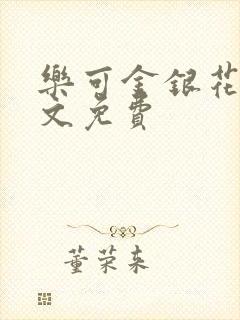 樂可金銀花
文免費
董荣来